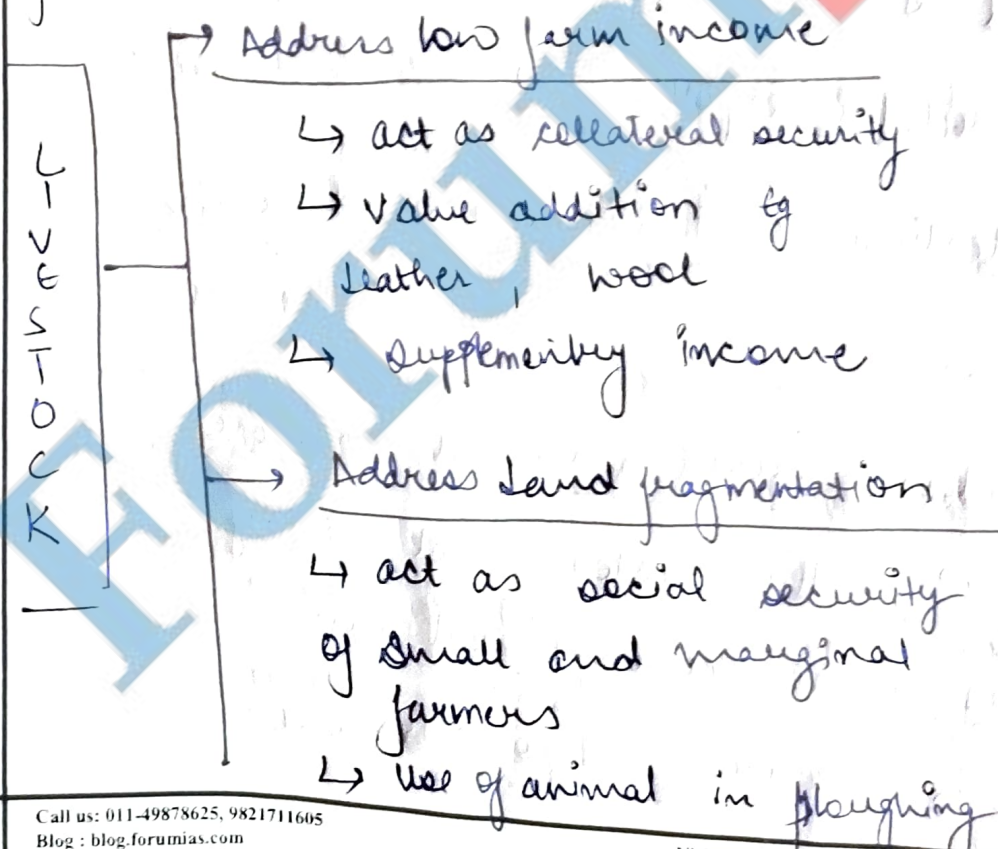 LIVESTOCK
→ Address low farm income
↳ act as collateral security
↳ value addition eg
leather, wool
↳ supplementry income
→ Address Land fragmentation
↳ act as social security
of small and marginal
farmers
↳ Use of animal in ploughing
Call us: 011-49878625, 9821711605
Blog : blog.forumias.com
Forum